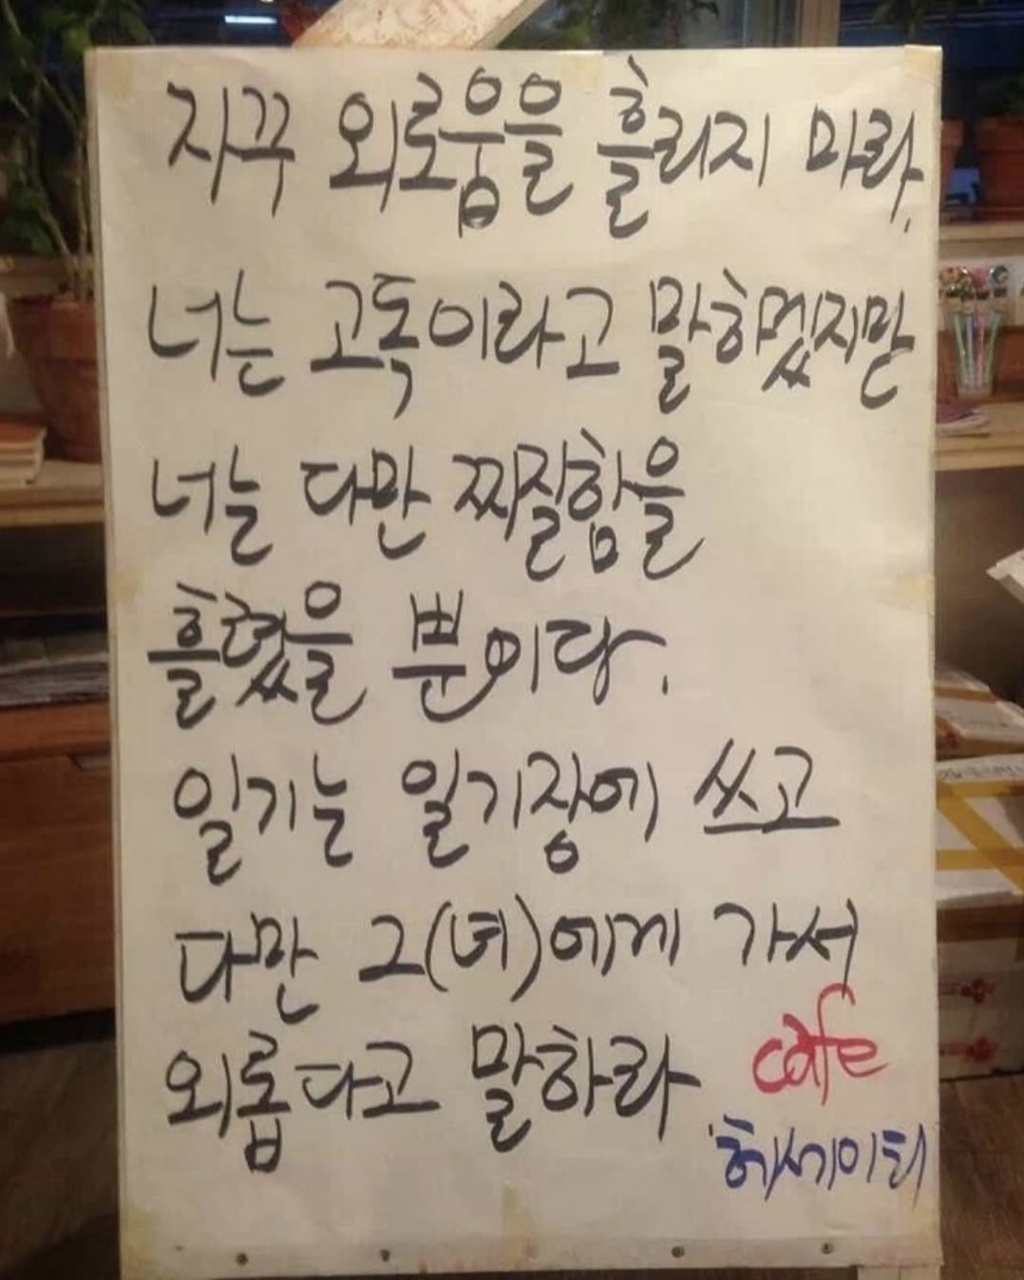 자꾸 외로움을 흘리지 마라.
너는 고독이라고 말하였지만
너는 다만 찌질함을
흘렸을 뿐이다.
일기는 일기장에 쓰고
다만 그(녀)에게 가서
외롭다고 말하라
cafe